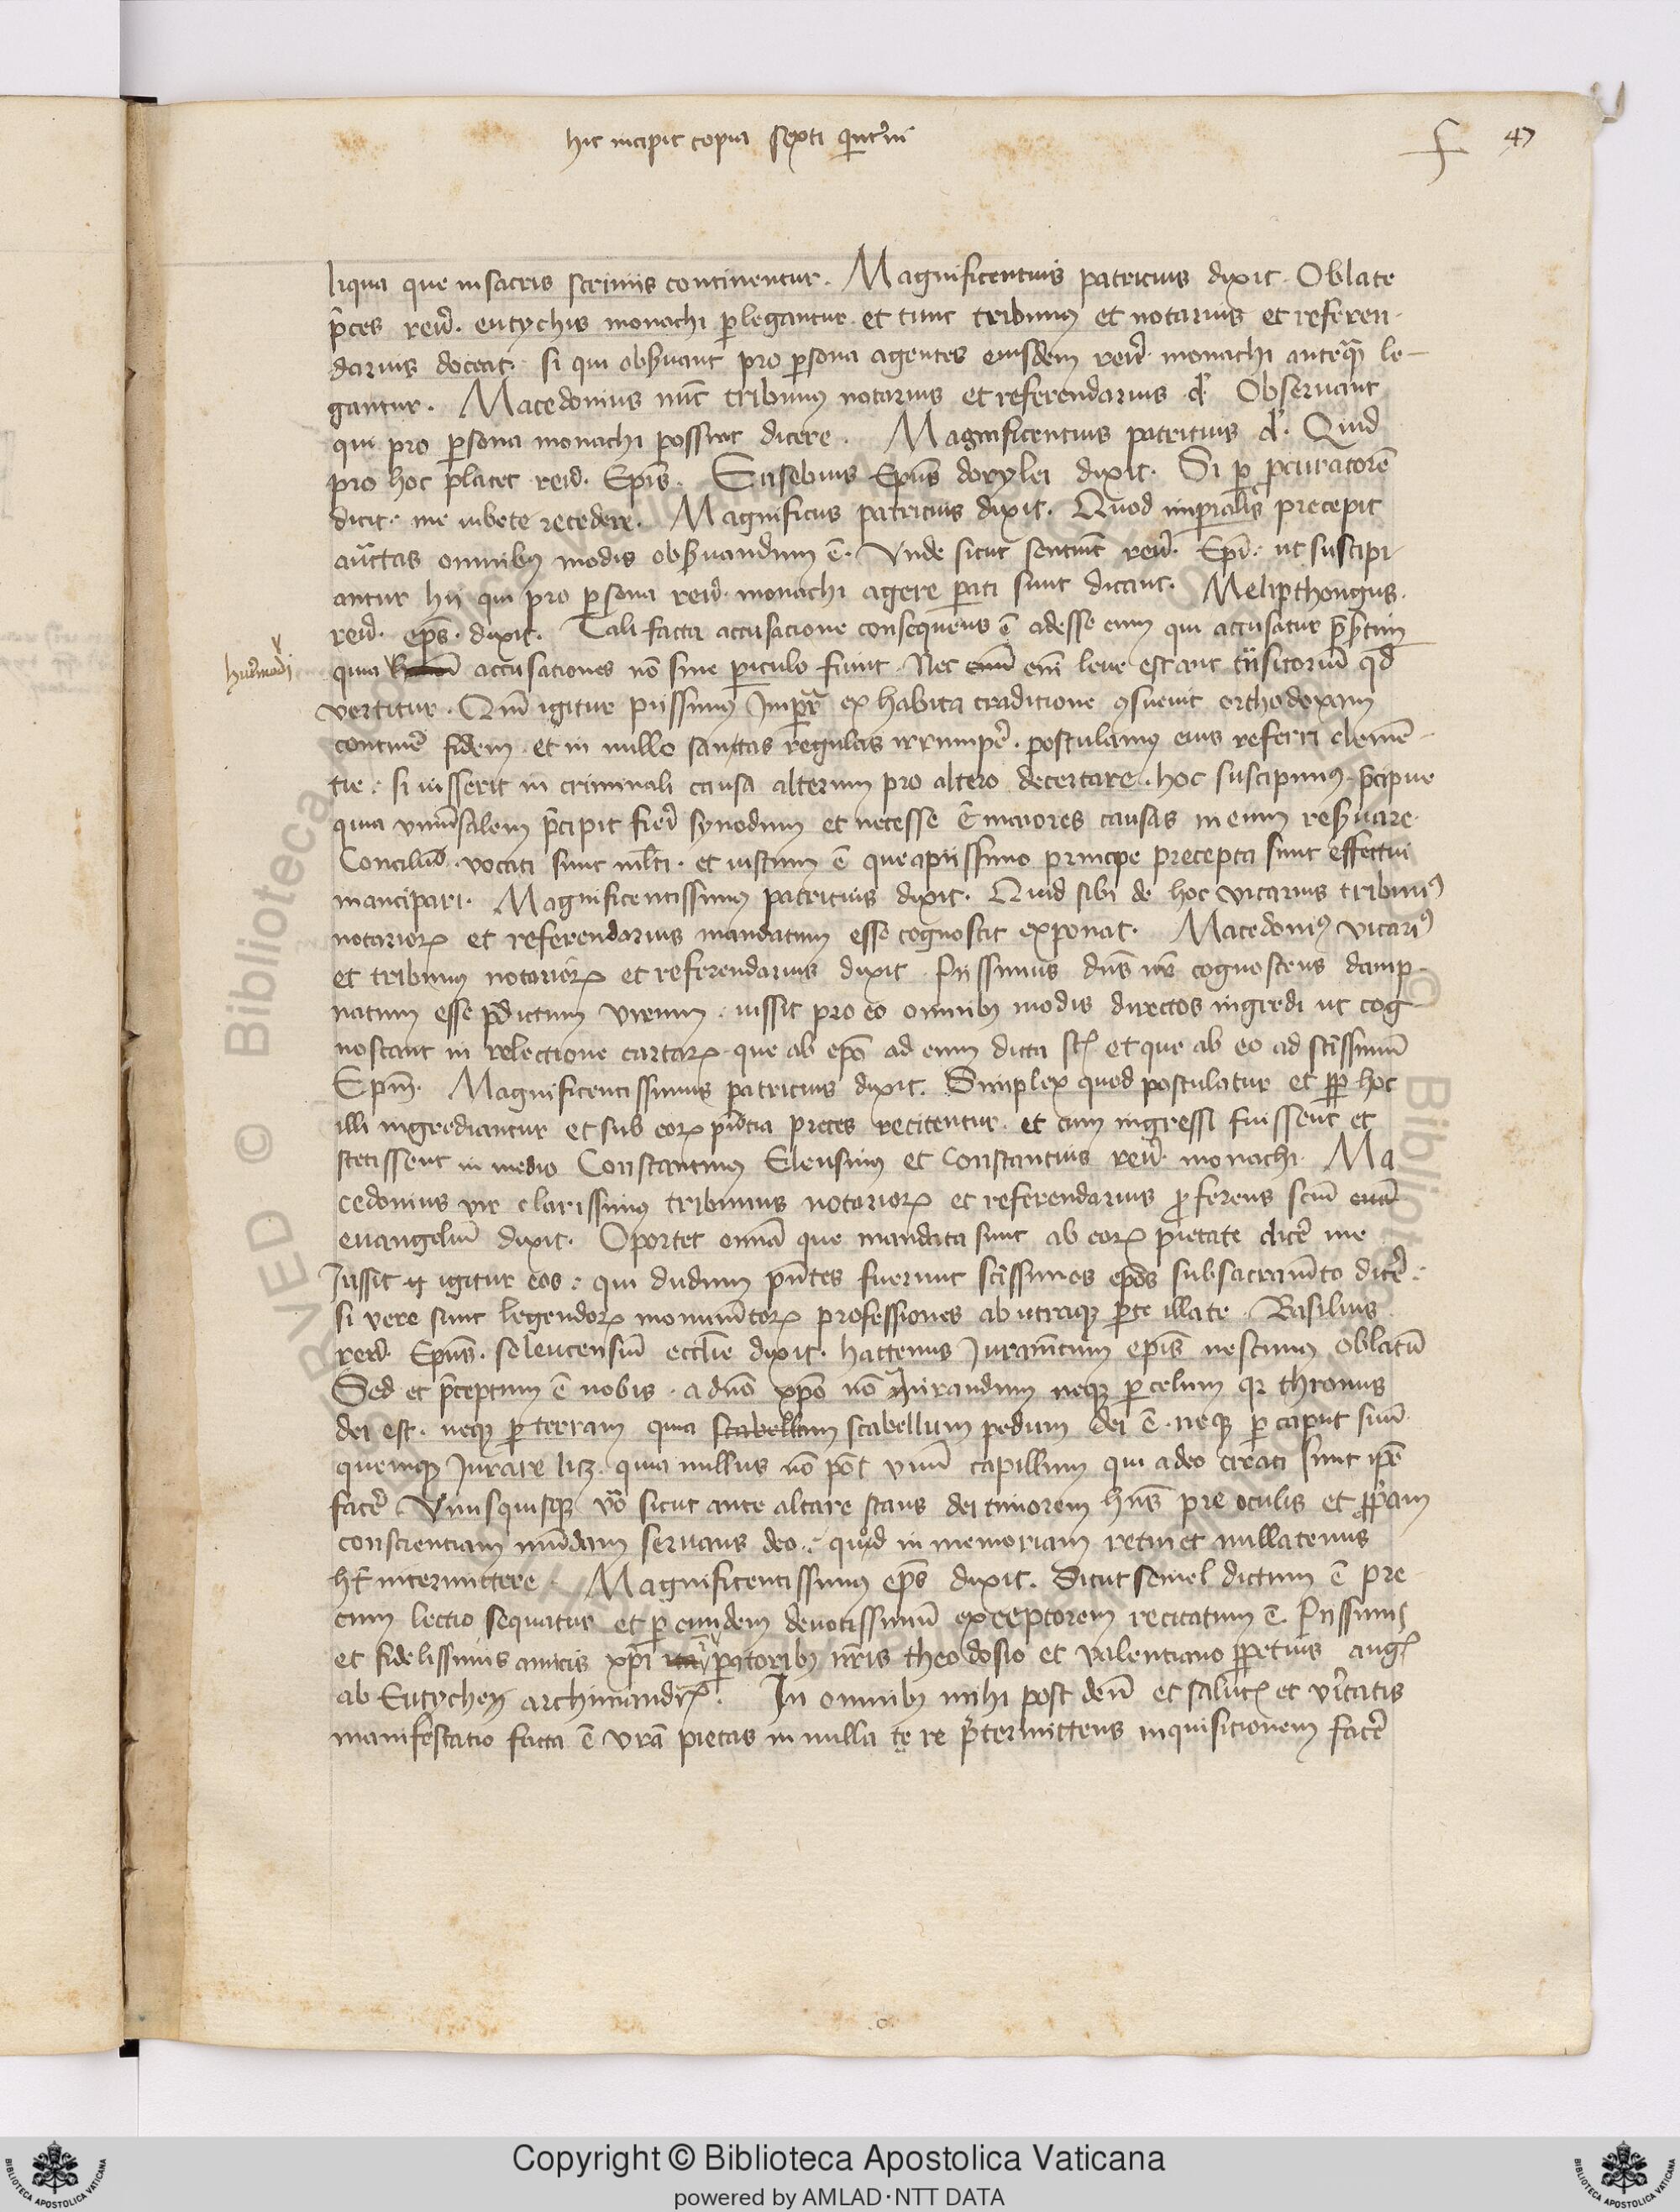 hic incipit copia sexti qͥnt̉ni
f 47
liqua que in sacris scrinijs continentur. Magnificentius patricius dixit. Oblate
p̄ces reuͥ. eutychis monachi ꝑlegantur. et tunc tribunꝰ et notarius et referen-
darius doceat. si qui obs̉uant pro ꝑsona agentes eiusdem reuͥ. monachi anteqͣꝫ le-
gantur. Macedonius tribunꝰ notarius et referendarius dͬ. Obseruant
qui pro ꝑsona monachi possunt dicere. Magnificentius patricius dͬ. Quid
pro hoc placet reuͥ. Ep̄is. Eusebius Ep̄us dorylei dixit. Si ꝑ ꝓcuratorē
dicit. me iubete recedere. Magnificus patricius dixit. Quod imꝑialis precepit
auͨctas omnibꝰ modis obs̉uandum ē. Vnde sicut sentiūt reuͥ. Ep̄i. ut suscipi-
antur hij qui pro ꝑsona reuͥ. monachi agere ꝑati sunt dicant. Meliꝑthongus.
reuͥ. ep̄s. dixit. Tali facta accusacione consequens ē adesse eum qui accusatur p̄s̉tim
huiͯmodi
quia accusaciones nō sine ꝑiculo fiunt. Nec enī leue est aut tͣnsitoriū qd̄
vertitur. Qm̄ igitur pijssimꝰ Imꝑͣr ex habita traditione ꝯsueuit orthodoxam
continē fidem. et in nullo sanctas regulas irrumpẻ. postulamꝰ eius referri clemē-
tie. si iusserit in criminali causa alterum pro altero decertare. hoc suscipimꝰ. p̄cipue
quia vniūsalem p̄cipit fieri synodum et necesse ē maiores causas in eum res̉uare.
Conciliū. vocati sunt ml̄ti. et iustum ē que a pijssimo principe precepta sunt effectui
mancipari. Magnificentissimꝰ patricius dixit. Quid sibi de hoc vicarius tribunꝰ
notarioꝝ et referendarius mandatum esse cognoscit exponat. Macedoniꝰ vicariꝰ
et tribunus notarioꝝ et referendarius dixit. Pijssimus dn̄s nr̄ cognoscens damp-
natum esse p̄dictum virum. iussit pro eo omnibꝰ modis directos ingredi ut cog-
noscant in relectione cartaꝝ que ab ep̄o ad eum dicta st̄ et que ab eo ad sc̄issimū
Ep̄m. Magnificentissimus patricius dixit. Simplex quod postulatur et ꝓꝑ hoc
illi ingrediantur et sub eoꝝ pn̄cia preces recitentur. et cum ingressi fuissent et
stetissent in medio Constantinꝰ Eleusinus et Constantius reuͥ. monachi. Ma
cedonius vir clarissimꝰ tribunus notarioꝝ et referendarius ꝓferens sc̄m
euangeliū dixit. Oportet omīa que mandata sunt ab eoꝝ pietate dicẻ me
Jussit igitur eos. qui dudum pn̄tes fuerunt sc̄issimos ep̄os sub sacramēto dicẻ.
si vere sunt legendoꝝ monumētoꝝ professiones ab utraqꝫ ꝑte illate. Basilius
reuͥ. Ep̄us. seleucensiū eccl̄ie dixit. hactenus Iuramētum ep̄is nescimꝰ oblatū
Sed et p̄ceptum ē nobis. a dn̄o xp̄o nō Iurandum neqꝫ ꝑ celum qꝛ thronus
dei est. neqꝫ ꝑ terram quia scabellum scabellum pedum dei ē. neqꝫ ꝑ caput suū
quemqꝫ Iurare lꝫ. quia nullus nō pōt vnū capillum qui a deo creati sunt ip̄e
facẻ. Vnusquisqꝫ vͦo sicut ante altare stans dei timorem hn̄s pre oculis et ꝓpͥam
conscienciam mūdam seruans deo. quod in memoriam retinet nullatenus
ht̄ intermittere. Magnificentissimꝰ ep̄s dixit. Sicut semel dictum ē pre-
cum lectio sequatur et ꝑ eundem deuotissimū exceptorem recitatum ē. Pijssimis
et fidelissimis amicis xp̄i imꝑatoribꝰ nr̄is theodosio et valentiano ꝑpetuis auḡ
ab Eutychen archimandrꝭ. In omnibꝰ mihi post deū et salutꝭ et vͥtatis
manifestatio facta ē vr̄a pietas in nulla re p̄termittens inquisitionem facẻ